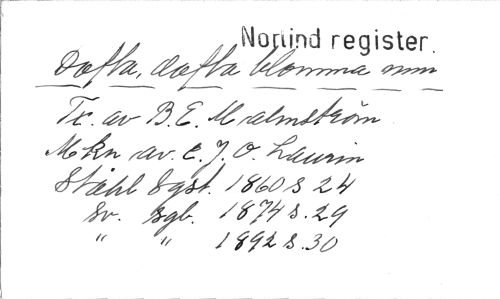 Norlind register.
Dofta, dofta blomma mm
Tx. av B.E. Malmström
Mkn av. C.J.O. Laurin
Ståhl Sgst. 1860 s 24
Sv. sgb. 1874 s. 29
" " 1892 s. 30